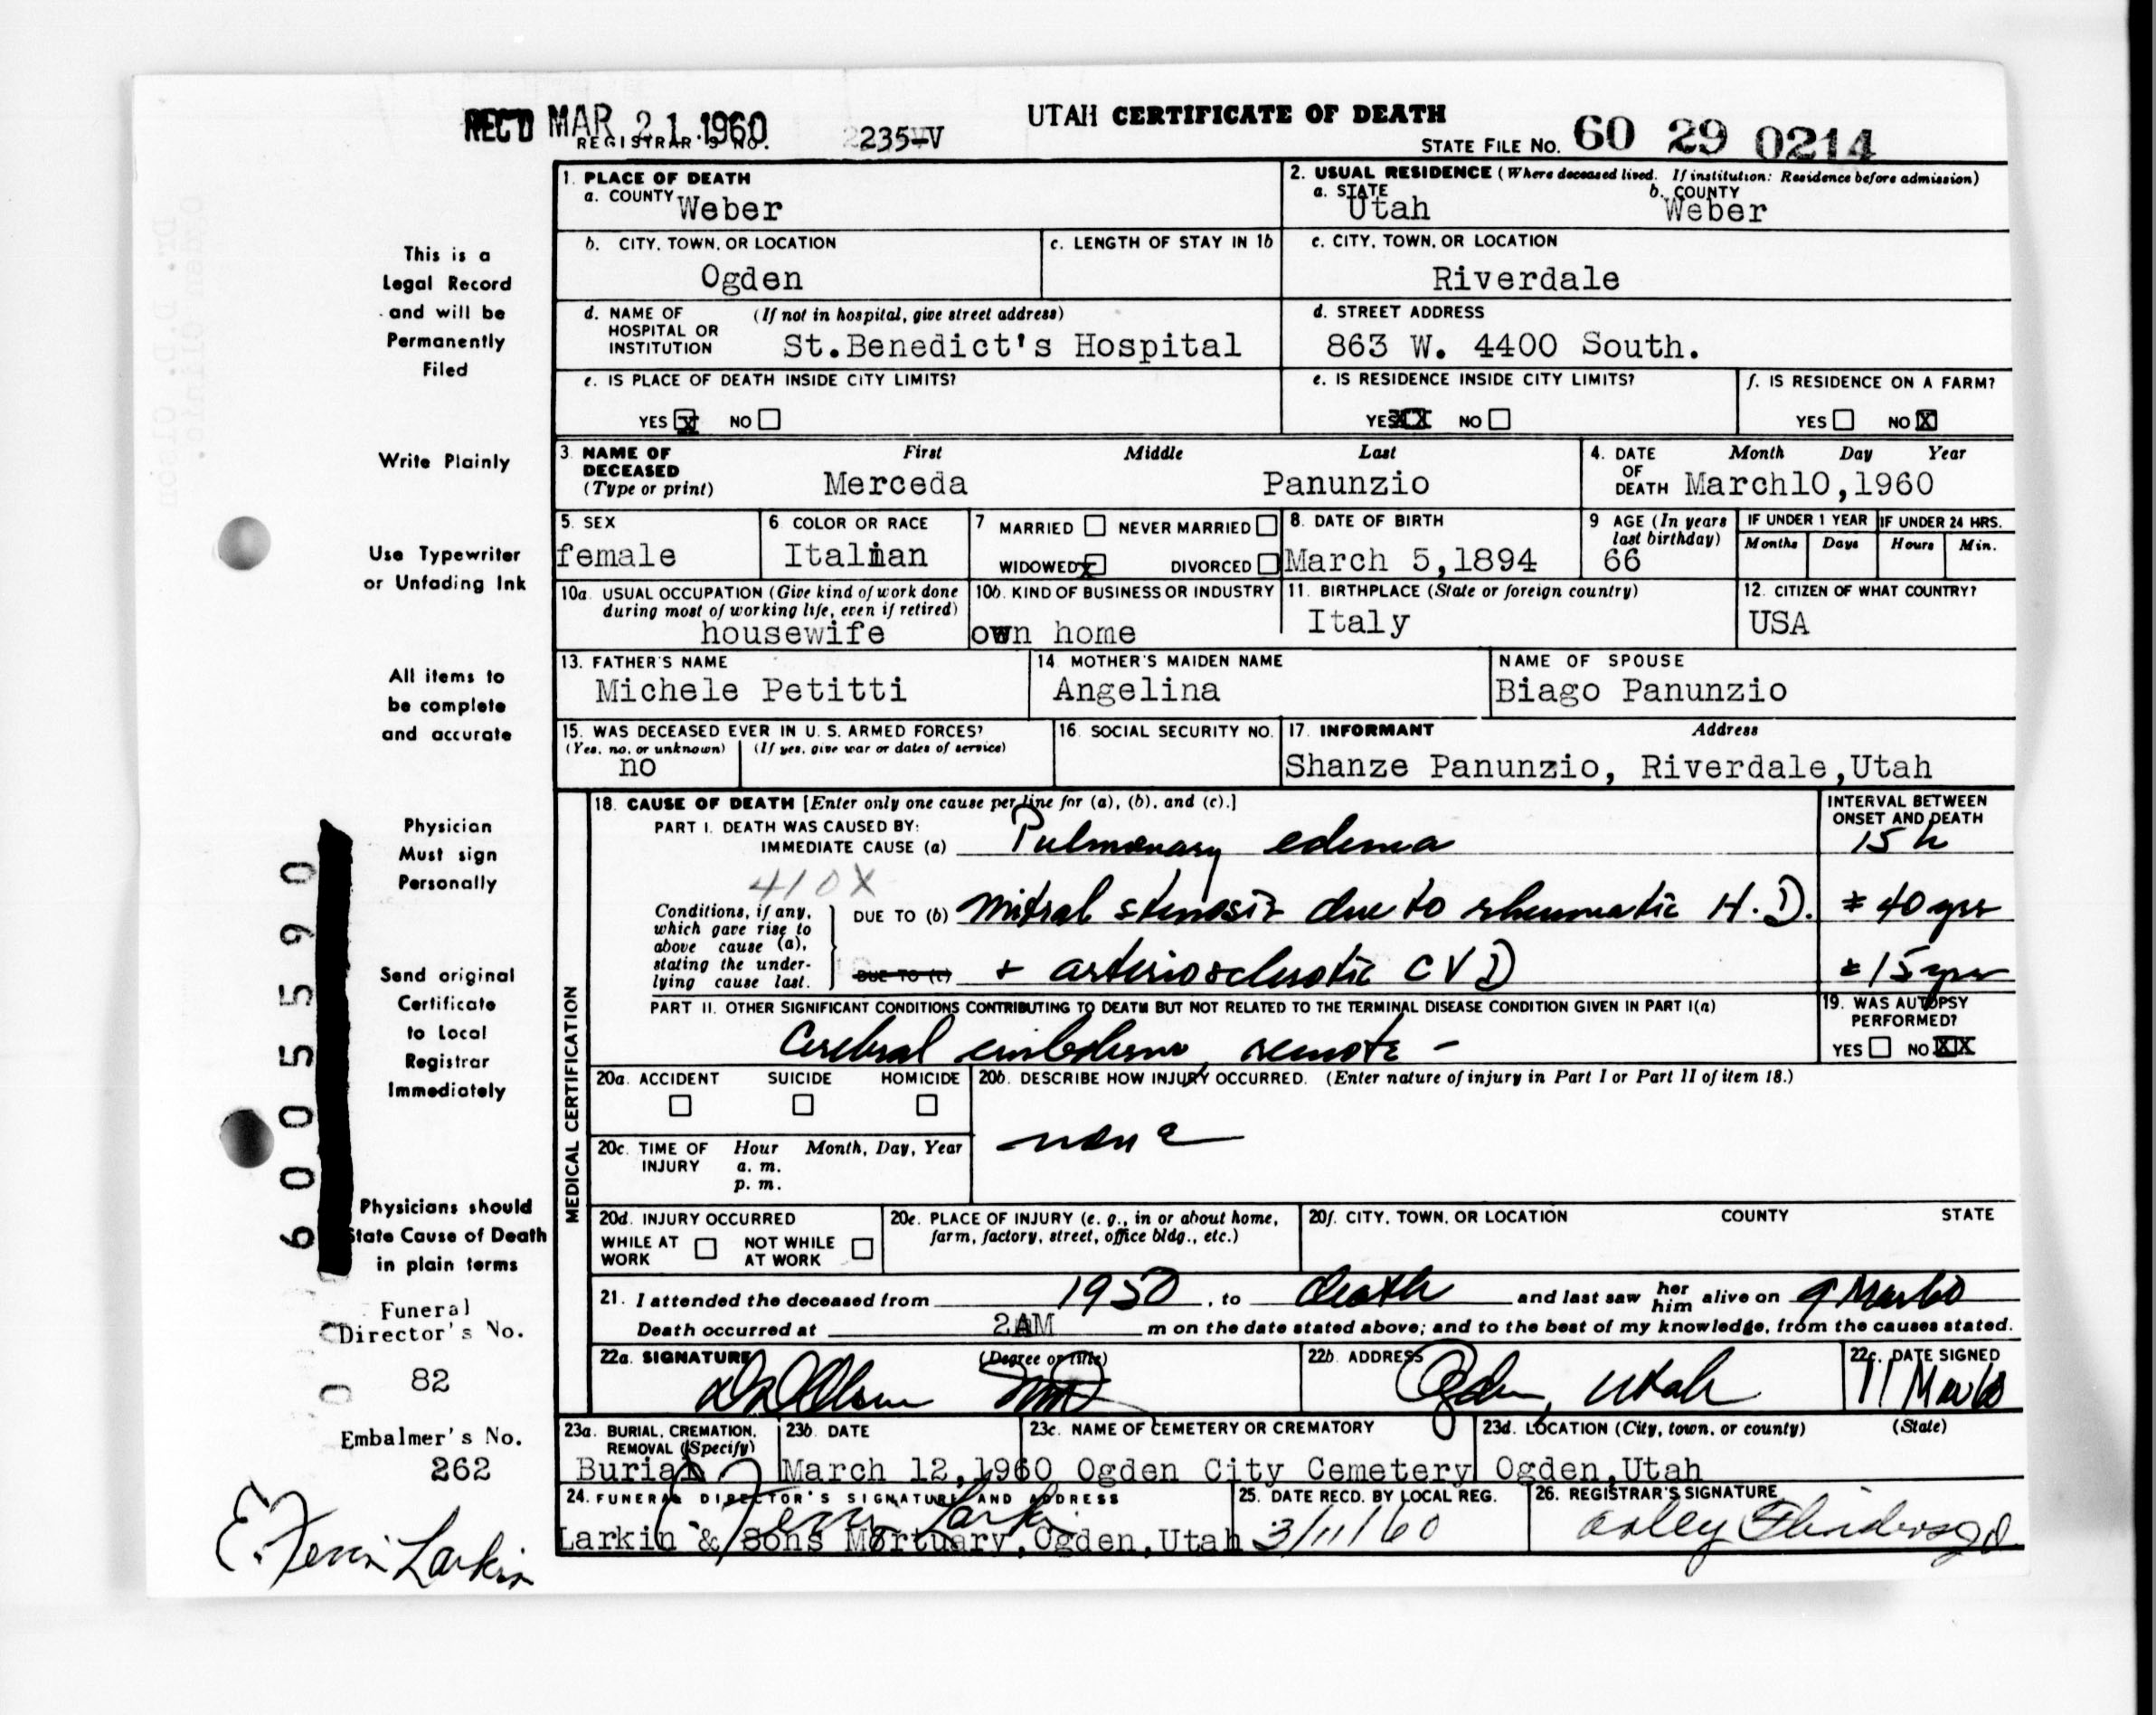 REC'D MAR 21 1960
REGISTRAR'S NO. 235-V
UTAH CERTIFICATE OF DEATH
STATE FILE NO. 60 29 0214
This is a
Legal Record
and will be
Permanently
Filed
Write Plainly
Use Typewriter
or Unfading Ink
All items to
be complete
and accurate
Physician
Must sign
Personally
Send original
Certificate
to Local
Registrar
Immediately
Physicians should
State Cause of Death
in plain terms
6005590
Funeral
Director's No.
82
Embalmer's No.
262
E. Ferrin Larkin
1. PLACE OF DEATH
a. COUNTY Weber
2. USUAL RESIDENCE (Where deceased lived. If institution: Residence before admission)
a. STATE Utah b. COUNTY Weber
b. CITY, TOWN, OR LOCATION Ogden
c. LENGTH OF STAY IN 1b
c. CITY, TOWN, OR LOCATION Riverdale
d. NAME OF HOSPITAL OR INSTITUTION (If not in hospital, give street address)
St.Benedict's Hospital
d. STREET ADDRESS
863 W. 4400 South.
e. IS PLACE OF DEATH INSIDE CITY LIMITS?
YES X NO
e. IS RESIDENCE INSIDE CITY LIMITS?
YES XX NO
f. IS RESIDENCE ON A FARM?
YES NO X
3. NAME OF DECEASED (Type or print)
First Middle Last
Merceda Panunzio
4. DATE OF DEATH Month Day Year
March10,1960
5. SEX
female
6. COLOR OR RACE
Italian
7 MARRIED NEVER MARRIED
WIDOWED X DIVORCED
8. DATE OF BIRTH
March 5,1894
9 AGE (In years last birthday)
66
IF UNDER 1 YEAR IF UNDER 24 HRS.
Months Days Hours Min.
10a. USUAL OCCUPATION (Give kind of work done during most of working life, even if retired)
housewife
10b. KIND OF BUSINESS OR INDUSTRY
own home
11. BIRTHPLACE (State or foreign country)
Italy
12. CITIZEN OF WHAT COUNTRY?
USA
13. FATHER'S NAME
Michele Petitti
14. MOTHER'S MAIDEN NAME
Angelina
NAME OF SPOUSE
Biago Panunzio
15. WAS DECEASED EVER IN U. S. ARMED FORCES?
(Yes, no, or unknown) (If yes, give war or dates of service)
no
16. SOCIAL SECURITY NO.
17. INFORMANT Address
Shanze Panunzio, Riverdale,Utah
MEDICAL CERTIFICATION
18. CAUSE OF DEATH [Enter only one cause per line for (a), (b), and (c).]
INTERVAL BETWEEN ONSET AND DEATH
PART I. DEATH WAS CAUSED BY:
IMMEDIATE CAUSE (a) Pulmonary edema 15 h
410X
Conditions, if any, which gave rise to above cause (a), stating the underlying cause last.
DUE TO (b) Mitral stenosis due to rheumatic H.D. ± 40 yrs
DUE TO (c) + arteriosclerotic CVD ± 15 yrs
PART II. OTHER SIGNIFICANT CONDITIONS CONTRIBUTING TO DEATH BUT NOT RELATED TO THE TERMINAL DISEASE CONDITION GIVEN IN PART I(a)
Cerebral embolism, remote -
19. WAS AUTOPSY PERFORMED?
YES NO XX
20a. ACCIDENT SUICIDE HOMICIDE
20b. DESCRIBE HOW INJURY OCCURRED. (Enter nature of injury in Part I or Part II of item 18.)
none
20c. TIME OF INJURY Hour Month, Day, Year
a. m.
p. m.
20d. INJURY OCCURRED
WHILE AT WORK NOT WHILE AT WORK
20e. PLACE OF INJURY (e. g., in or about home, farm, factory, street, office bldg., etc.)
20f. CITY, TOWN, OR LOCATION COUNTY STATE
21. I attended the deceased from 1950, to death and last saw her him alive on 9 Mar 60
Death occurred at 2AM m on the date stated above; and to the best of my knowledge, from the causes stated.
22a. SIGNATURE (Degree or title)
Olson MD
22b. ADDRESS
Ogden, Utah
22c. DATE SIGNED
11 Mar 60
23a. BURIAL, CREMATION, REMOVAL (Specify)
Burial
23b. DATE
March 12,1960
23c. NAME OF CEMETERY OR CREMATORY
Ogden City Cemetery
23d. LOCATION (City, town, or county) (State)
Ogden,Utah
24. FUNERAL DIRECTOR'S SIGNATURE AND ADDRESS
E Ferrin Larkin
Larkin & Sons Mortuary,Ogden,Utah
25. DATE RECD. BY LOCAL REG.
3/11/60
26. REGISTRAR'S SIGNATURE